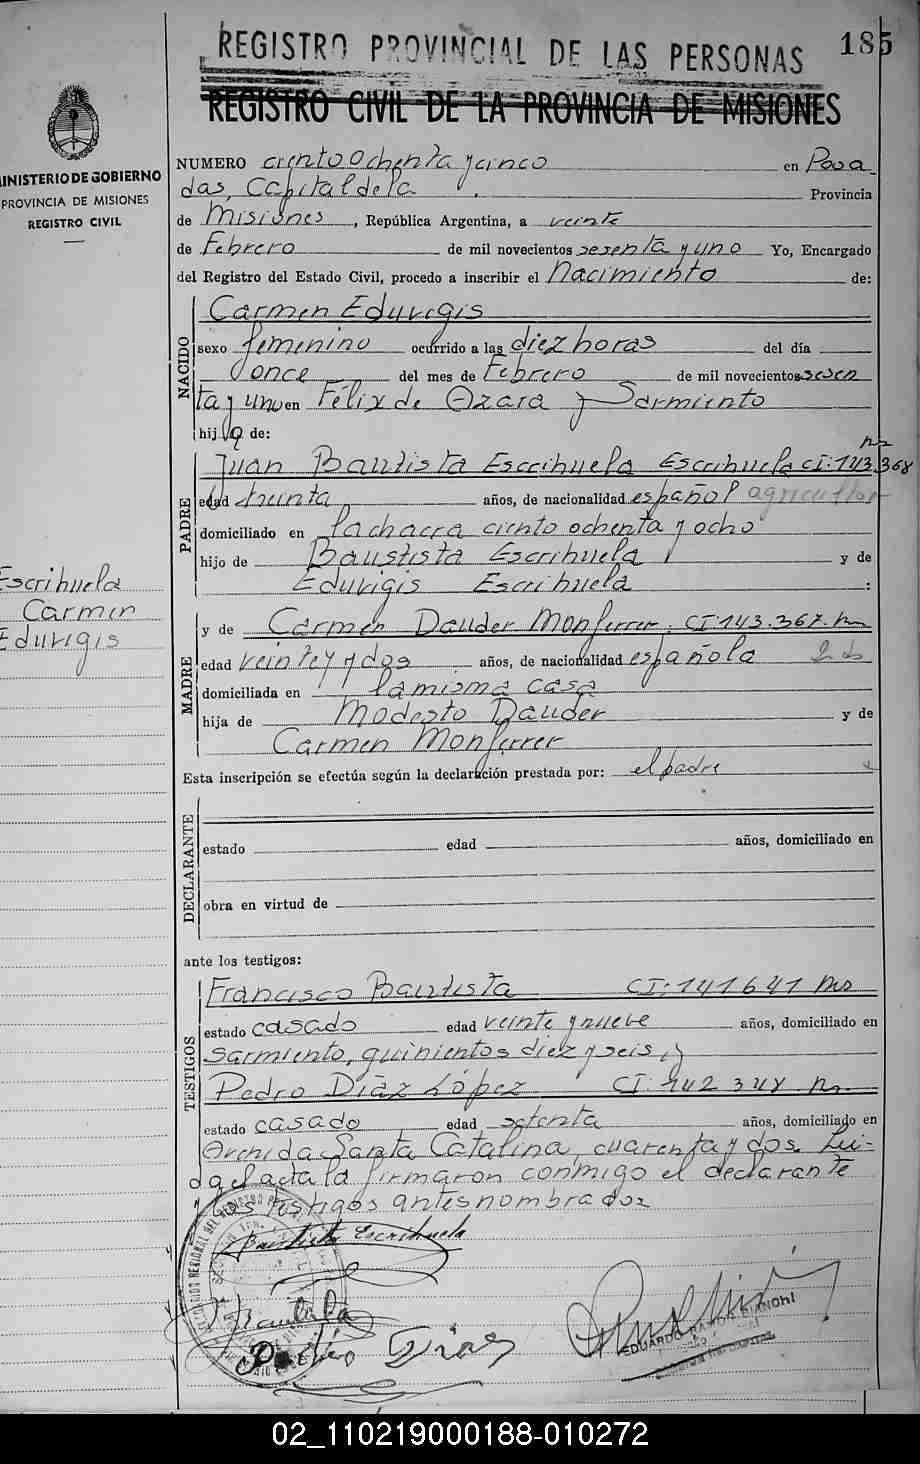 185
REGISTRO PROVINCIAL DE LAS PERSONAS
REGISTRO CIVIL DE LA PROVINCIA DE MISIONES
MINISTERIO DE GOBIERNO
PROVINCIA DE MISIONES
REGISTRO CIVIL
NUMERO ciento ochenta y cinco en Posa
das, Capital de la Provincia
de Misiones, República Argentina, a veinte
de Febrero de mil novecientos sesenta y uno Yo, Encargado
del Registro del Estado Civil, procedo a inscribir el Nacimiento de:
NACIDO
Carmen Eduvigis
sexo femenino ocurrido a las diez horas del día
once del mes de Febrero de mil novecientos sesen
ta y uno en Félix de Azara y Sarmiento
hija de:
PADRE
Juan Bautista Escrihuela Escrihuela CI: 143.368
edad treinta años, de nacionalidad español agricultor
domiciliado en la chacra ciento ochenta y ocho
hijo de Baustista Escrihuela y de
Eduvigis Escrihuela :
Escrihuela
Carmen
Eduvigis
MADRE
y de Carmen Dauder Monferrer. CI 143.367.
edad veinte y dos años, de nacionalidad española
domiciliada en la misma casa
hija de Modesto Dauder y de
Carmen Monferrer
Esta inscripción se efectúa según la declaración prestada por: el padre
DECLARANTE
estado edad años, domiciliado en
obra en virtud de
ante los testigos:
TESTIGOS
Francisco Bautista CI: 141641
estado casado edad veinte y nueve años, domiciliado en
Sarmiento, quinientos diez y seis, y
Pedro Díaz López CI: 142348
estado casado edad setenta años, domiciliado en
Avenida Santa Catalina, cuarenta y dos. Leí-
da el acta la firmaron conmigo el declarante
y los testigos antes nombrados
Bautista Escrihuela
Pedro Diaz
EDUARDO RAMON BIANCHI
02_110219000188-010272